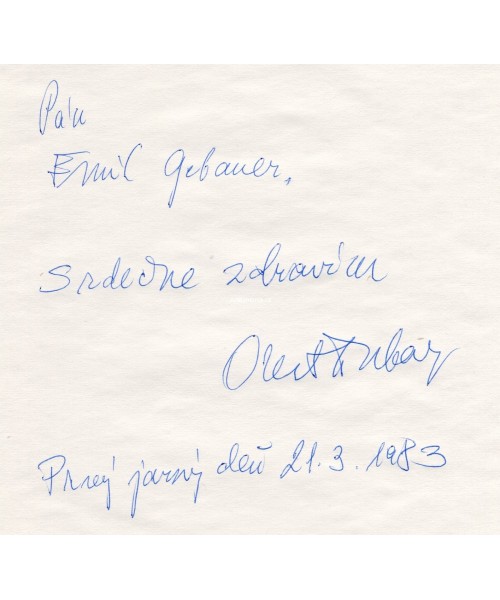 Pán
Emil Gebauer,
srdečne zdravím
Prvý jarný deň 21.3.1983